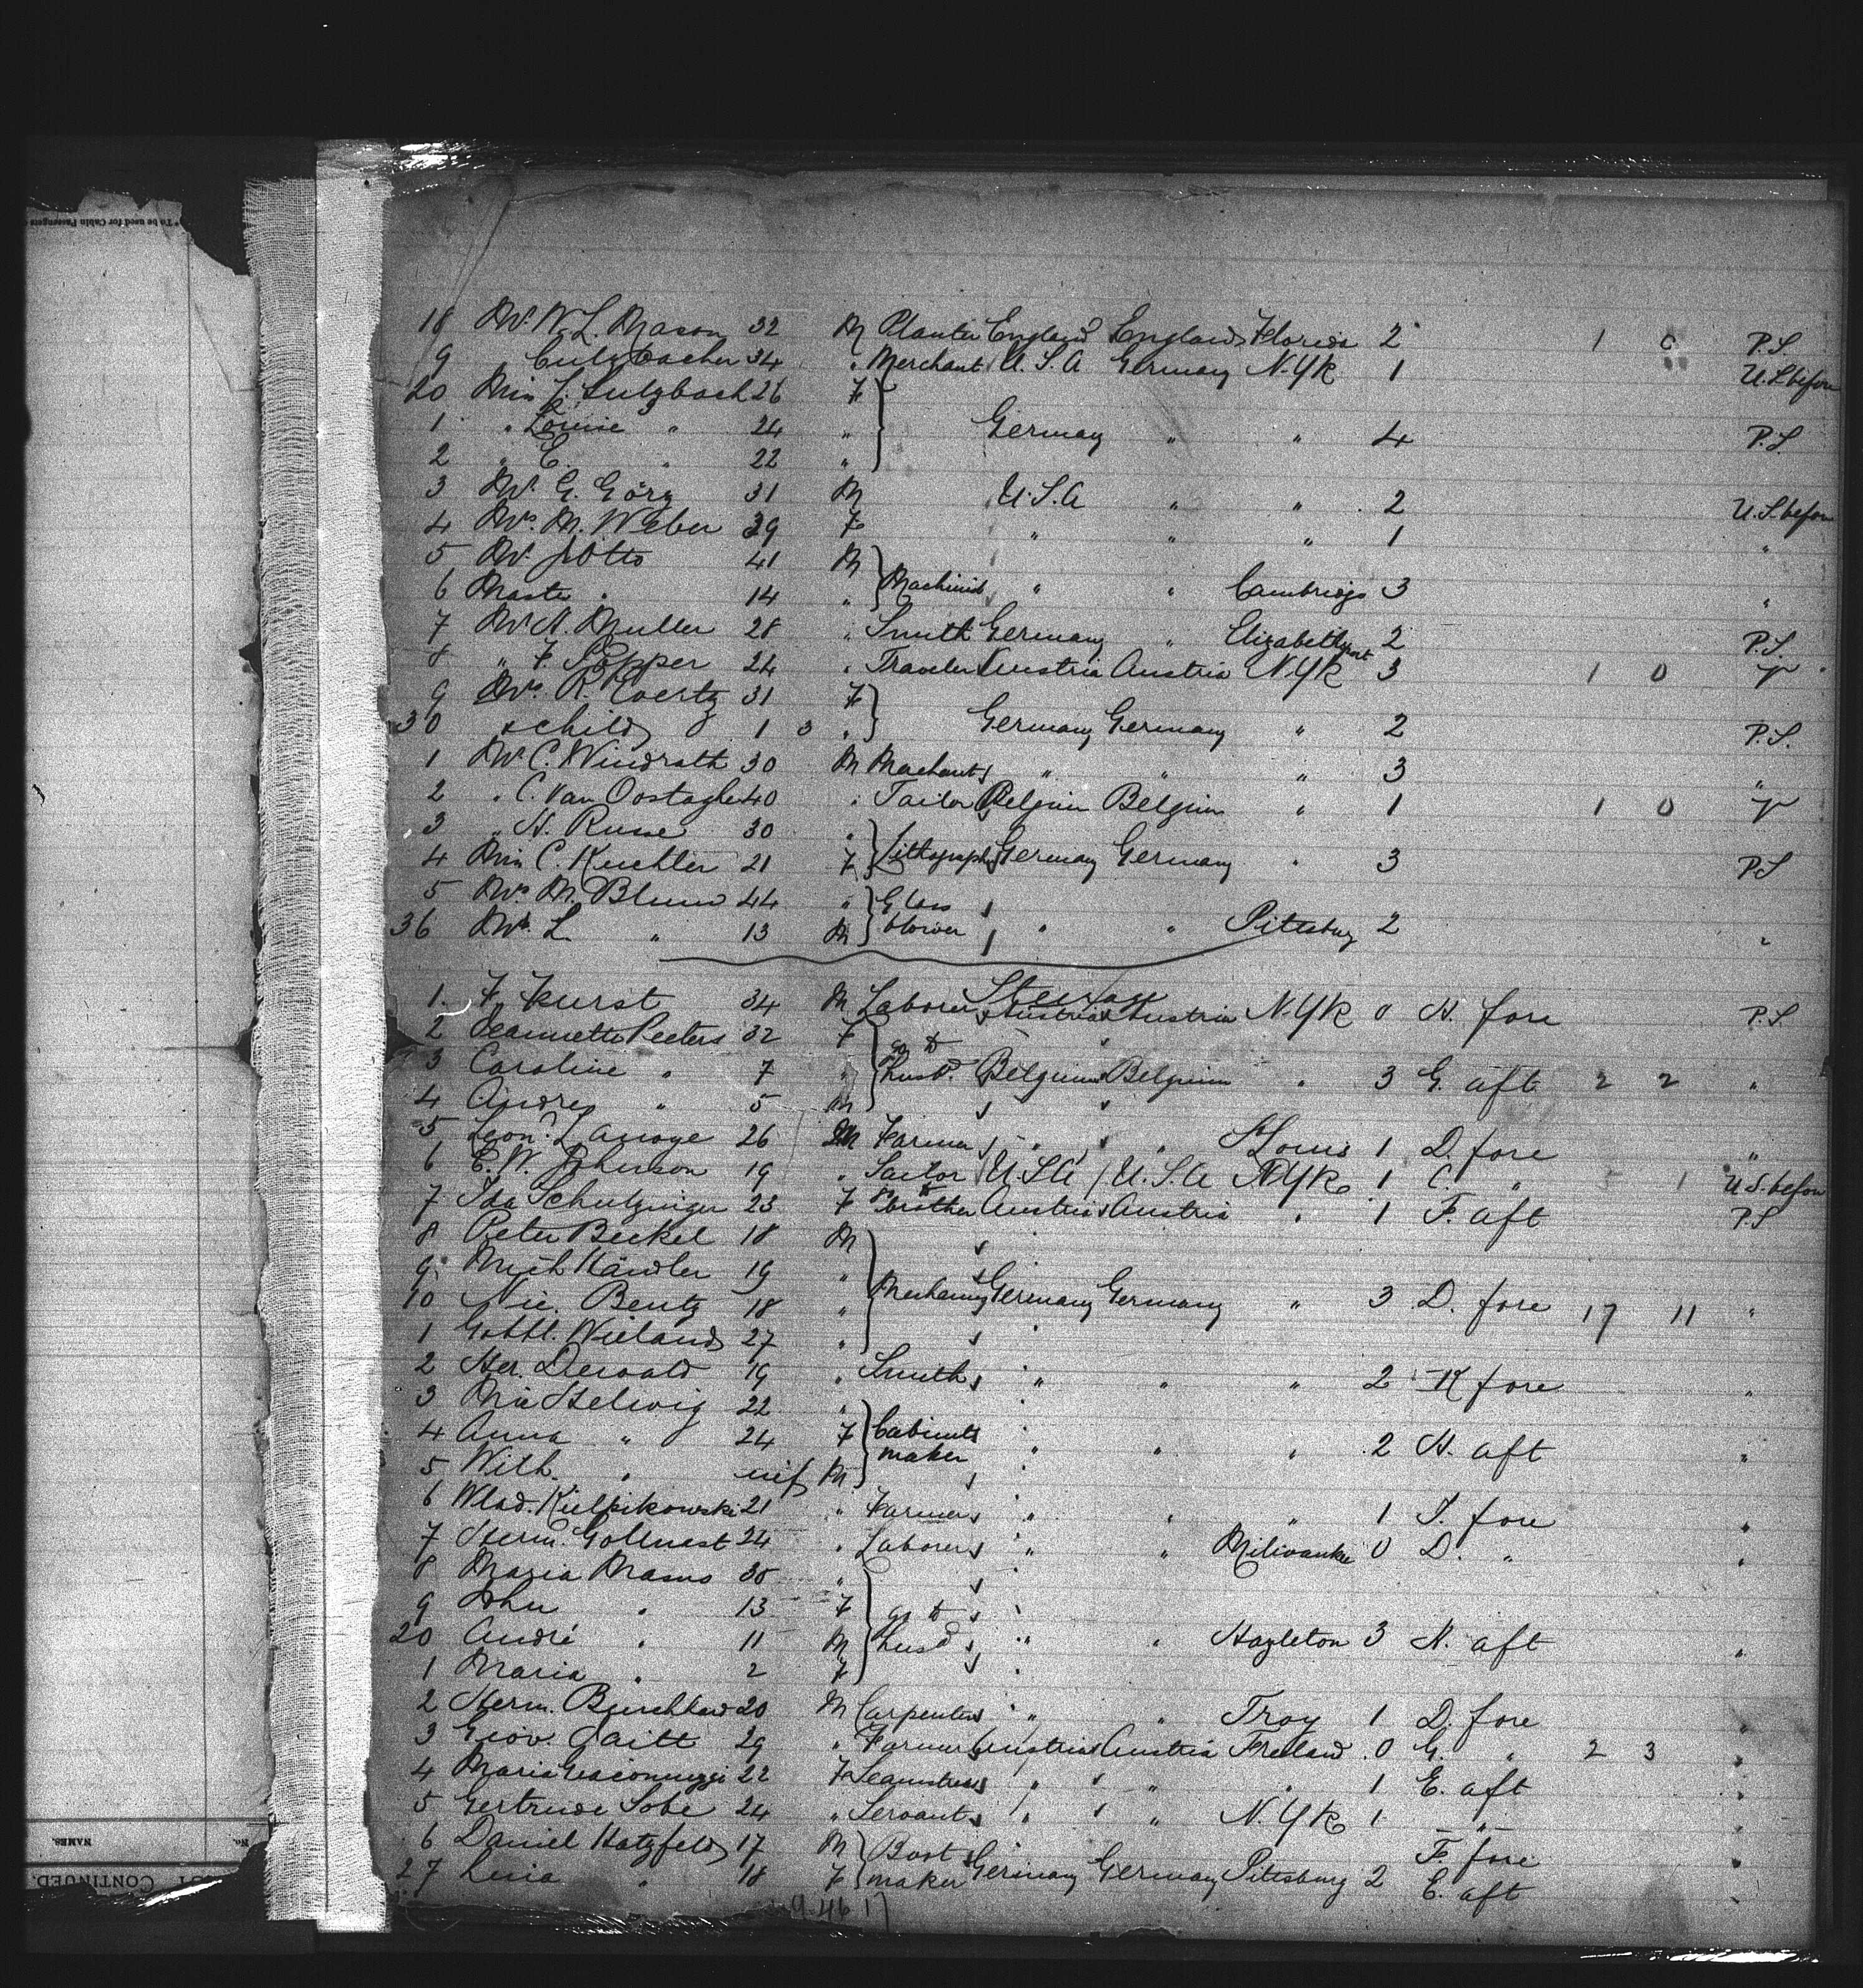 *To be used for Cabin Passengers
18 Mr. W. L. Mason 32 M Planter England England Florida 2 1 0 P.S.
9 " Sulzbacher 34 " Merchant U.S.A Germany N.Yk 1 U.S. before
20 Miss J. Sulzbach 26 F
1 " Louise " 24 " Germany " " 4 P.S.
2 " E. " 22 "
3 Mr. G. Görz 31 M U.S.A " " 2 U.S. before
4 Mrs. M. Weber 39 F " " " 1 "
5 Mr. J Otto 41 M
6 Master " 14 " Machinist " " Cambridge 3 "
7 Mr. A. Muller 28 " Smith Germany " Elizabethport 2 P.S.
8 " F. Popper 24 " Traveler Austria Austria N.Yk 3 1 0 T
9 Mrs. R. Koertz 31 F
30 & child 1 3 " Germany Germany " 2 P.S.
1 Mr. C. Windrath 30 M Merchant " " " 3 "
2 " C. Van Oostaghe 40 " Tailor Belgium Belgium " 1 1 0 T
3 " H. Russe 30 "
4 Miss C. Kuchler 21 F Lithograph Germany Germany " 3 P.S
5 Mrs. M. Blum 44 " Glass
36 Mr. L. " 13 M blower " " Pittsburg 2 "
Steerage
1. F. Furst 34 M Laborer Austria Austria N.Yk 0 H. fore P.S.
2 Jeannette Peeters 32 F go to
3 Caroline " 7 " husbd. Belgium Belgium " 3 G. aft 2 2 "
4 Andre " 5 M
5 Leon. Lanoye 26 M Farmer " " St Louis 1 D. fore "
6 C. W. Johnson 19 " Sailor U.S.A U.S.A N.Yk 1 C. " 1 U.S. before
7 Ida Schutzinger 23 F go to brother Austria Austria " 1 F. aft P.S
8 Peter Beckel 18 M
9 Mich Händler 19 "
10 Nic. Bentz 18 " Mechanics Germany Germany " 3 D. fore 17 11 "
1 Gottl. Wieland 27 "
2 Her. Dewald 19 " Smith " " " 2 K fore "
3 Mic Helwig 22 "
4 Anna " 24 F Cabinet
5 Wilh. " inf M maker " " " 2 H. aft "
6 Wlad. Kulpikowski 21 " Farmer " " " 1 J. fore "
7 Herm. Gollnast 24 " Laborer " " Milwaukee 0 D. " "
8 Maria Mamo 38 "
9 John " 13 F go to
20 André " 11 M husbd " " Hazleton 3 H. aft "
1 Maria " 2 F
2 Herm. Burchhard 20 M Carpenter " " Troy 1 D. fore "
3 Giov. Gaitt 29 " Farmer Austria Austria Freeland 0 G. " 2 3 "
4 Maria Giaconuzzi 22 F Seamstress " " " 1 E. aft "
5 Gertrude Sobe 24 " Servant " " N.Yk 1 " "
6 Daniel Hatzfeld 17 M Boot F. fore "
27 Luia " 18 F maker Germany Germany Pittsburg 2 E. aft "
9.46 17
No. NAMES.
CONTINUED.